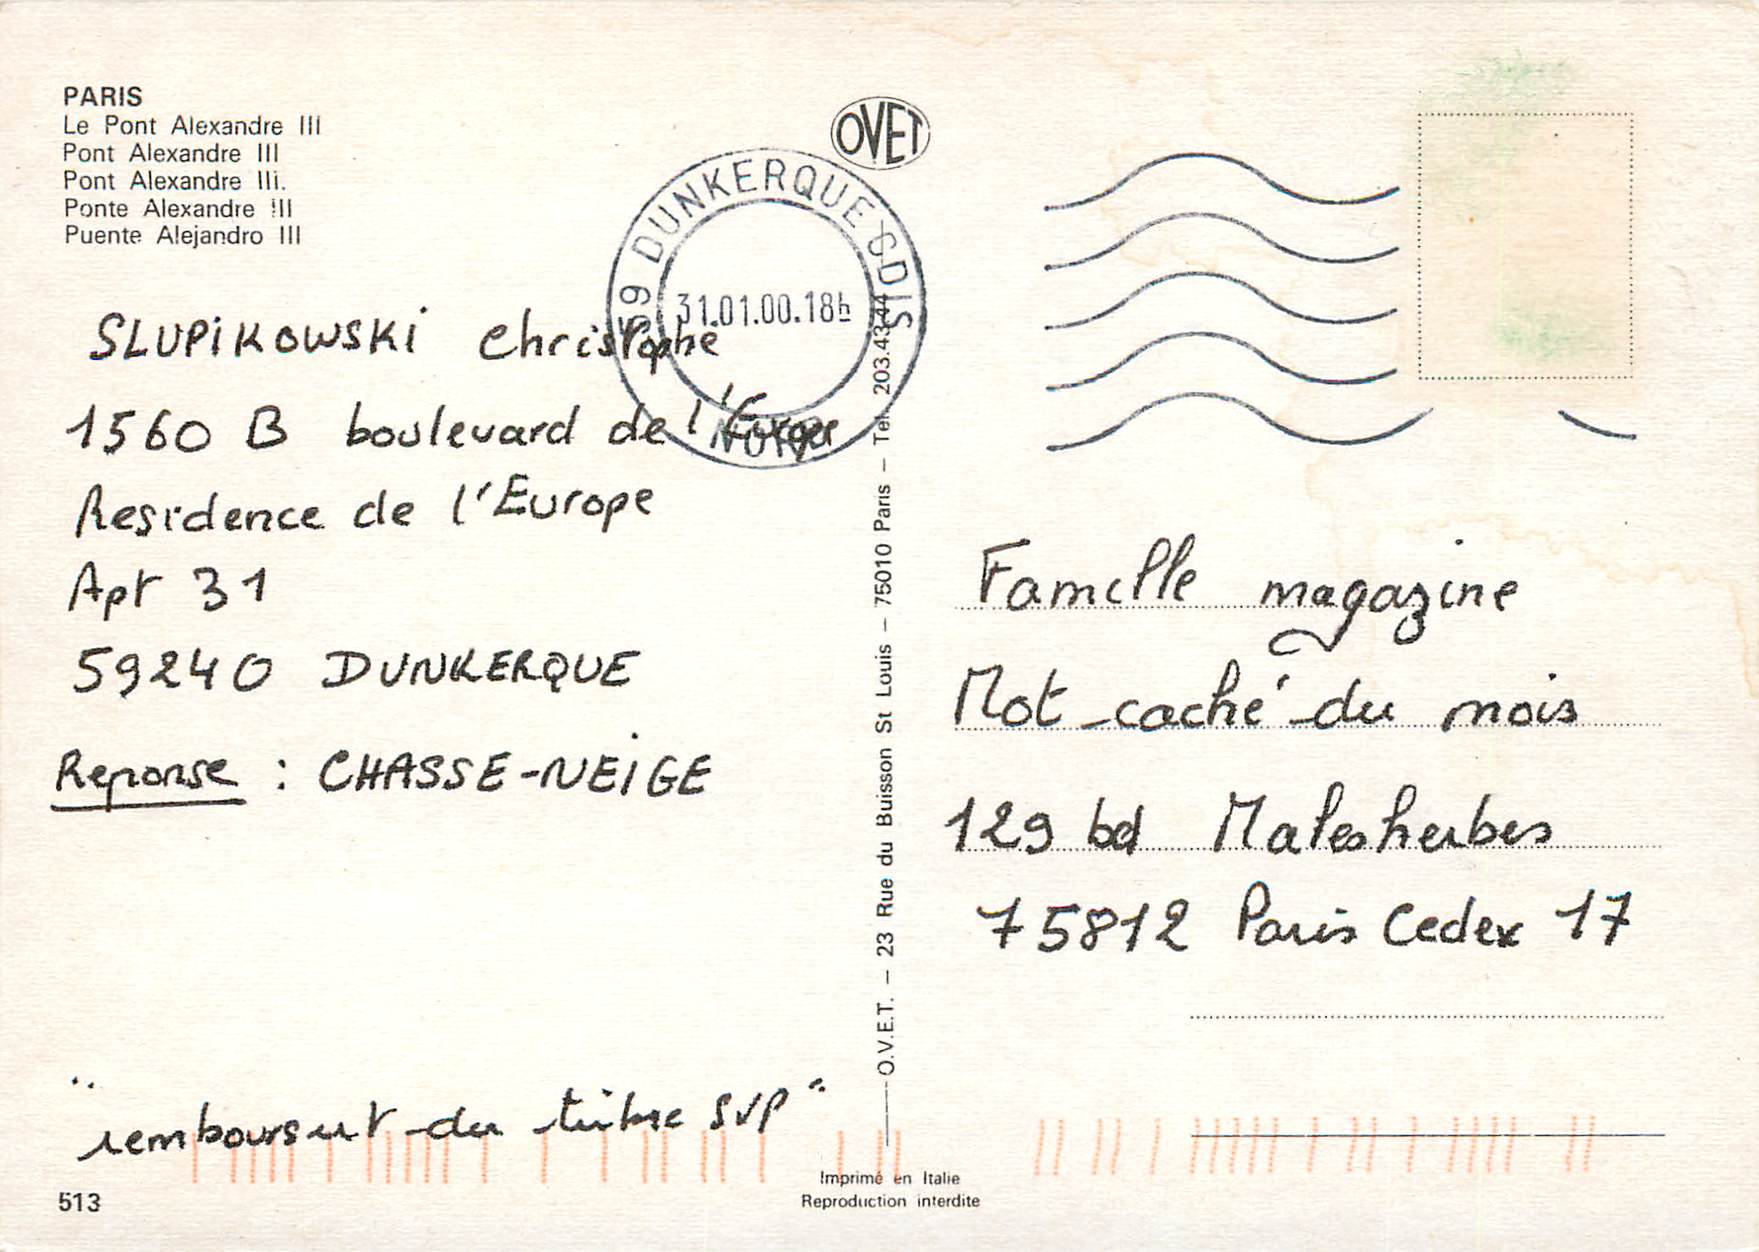 PARIS
Le Pont Alexandre III
Pont Alexandre III
Pont Alexandre IIi.
Ponte Alexandre III
Puente Alejandro III
OVET
59 DUNKERQUE CDIS
31.01.00.18h
NORD
SLUPiKOWSKi Christophe
1560 B boulevard de l'Europe
Residence de l'Europe
Apt 31
59240 DUNKERQUE
Reponse : CHASSE-NEiGE
"remboursent du timbre SVP"
513
O.V.E.T. — 23 Rue du Buisson St Louis — 75010 Paris — Tel. 203.43.44
Famille magazine
Mot caché du mois
129 bd Malesherbes
75812 Paris Cedex 17
Imprimé en Italie
Reproduction interdite